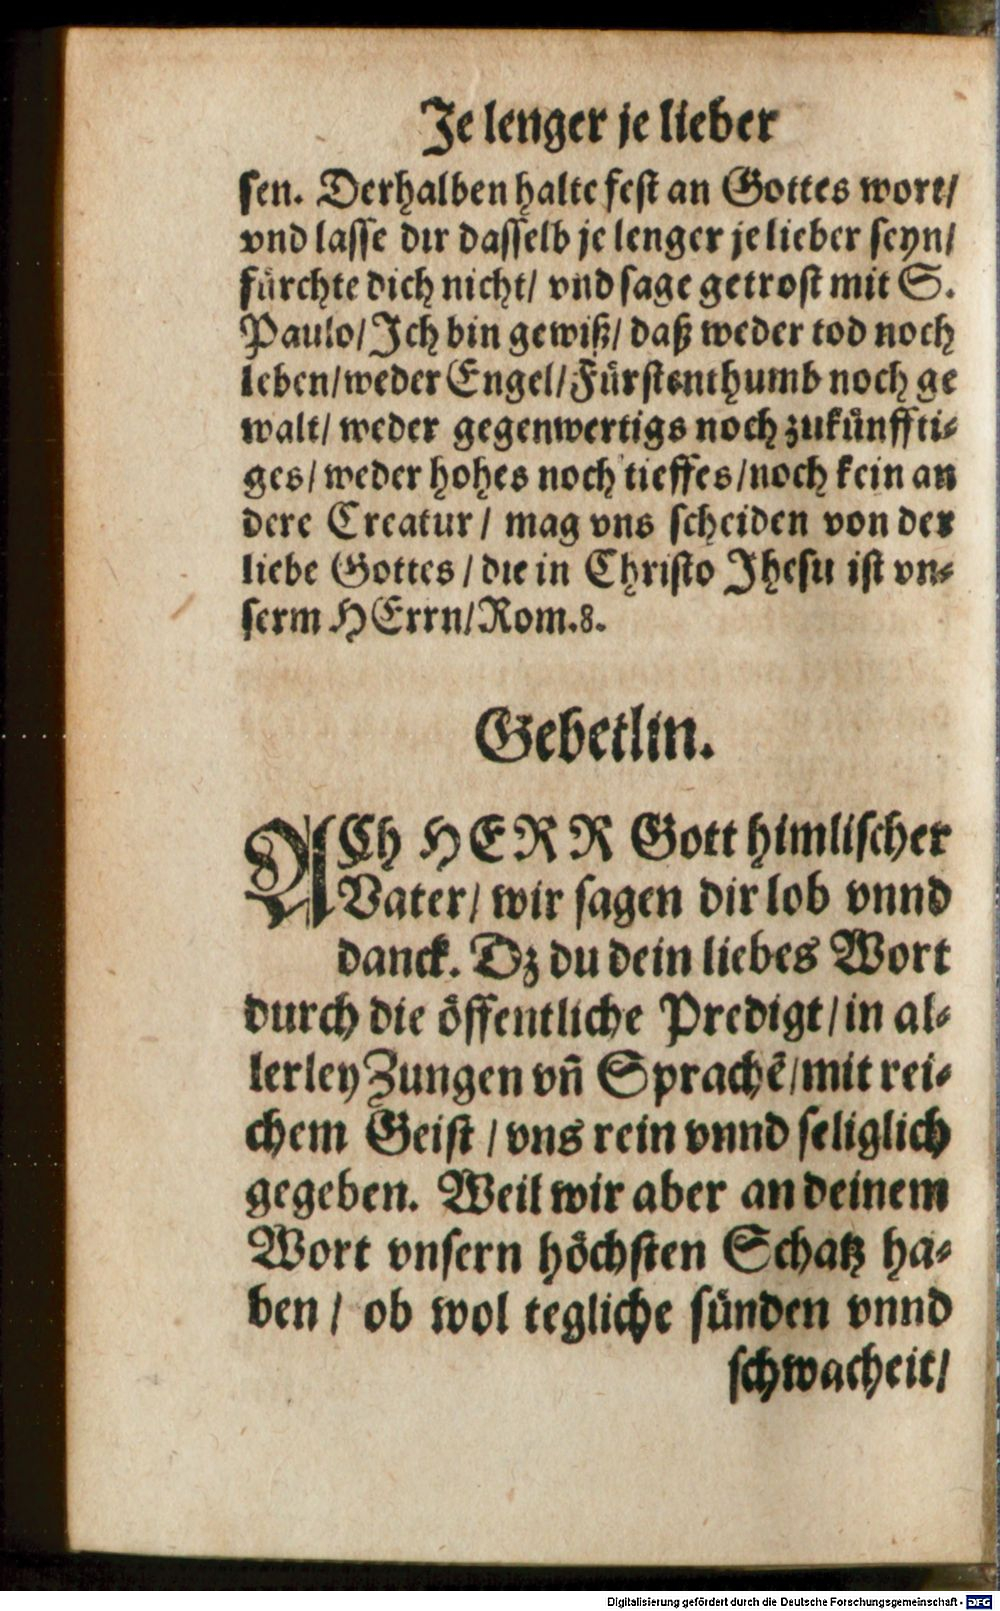 Je lenger je lieber
sen. Derhalben halte fest an Gottes wort/
vnd lasse dir dasselb je lenger je lieber seyn/
fürchte dich nicht/ vnd sage getrost mit S.
Paulo/ Ich bin gewiß/ daß weder tod noch
leben/ weder Engel/ Fürstenthumb noch ge
walt/ weder gegenwertigs noch zukünffti-
ges/ weder hohes noch tieffes/ noch kein an
dere Creatur/ mag vns scheiden von der
liebe Gottes/ die in Christo Jhesu ist vn-
serm HErrn/ Rom. 8.
Gebetlin.
ACh HERR Gott himlischer
Vater/ wir sagen dir lob vnnd
danck. Dz du dein liebes Wort
durch die öffentliche Predigt/ in al-
lerley Zungen vñ Sprachē/ mit rei-
chem Geist/ vns rein vnnd seliglich
gegeben. Weil wir aber an deinem
Wort vnsern höchsten Schatz ha-
ben/ ob wol tegliche sünden vnnd
schwacheit/
Digitalisierung gefördert durch die Deutsche Forschungsgemeinschaft - DFG